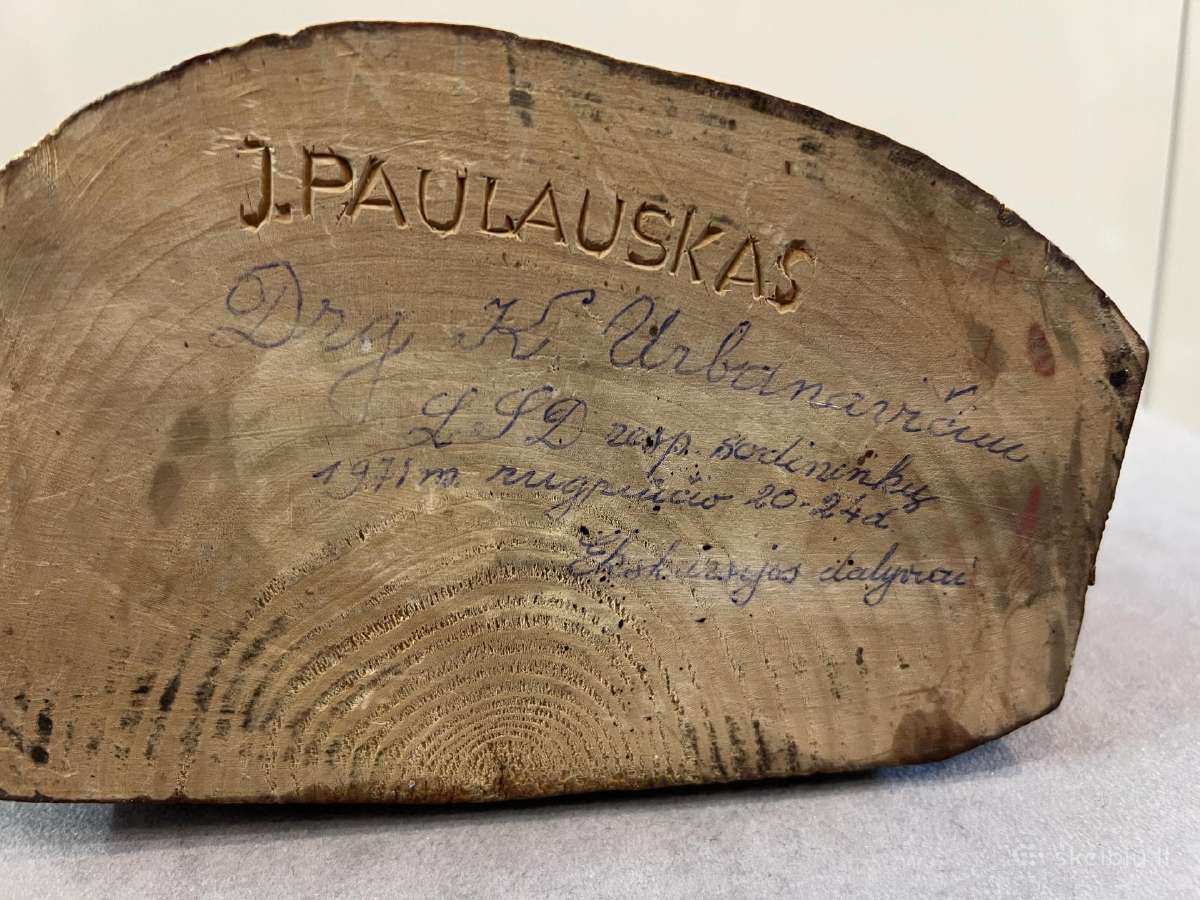 J.PAULAUSKAS
Drg K. Urbanavičiui
LSD resp. sodininkų
1971m. rugpiūčio 20-24d
Ekskursijos dalyviui
skelbiu.lt